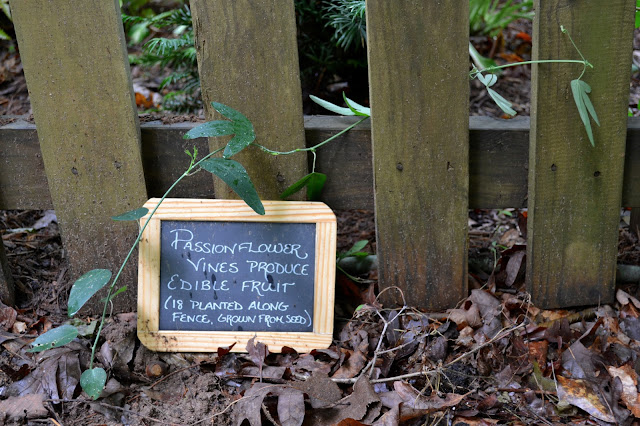 PASSIONFLOWER
VINES PRODUCE
EDIBLE FRUIT
(18 PLANTED ALONG
FENCE, GROWN FROM SEED)